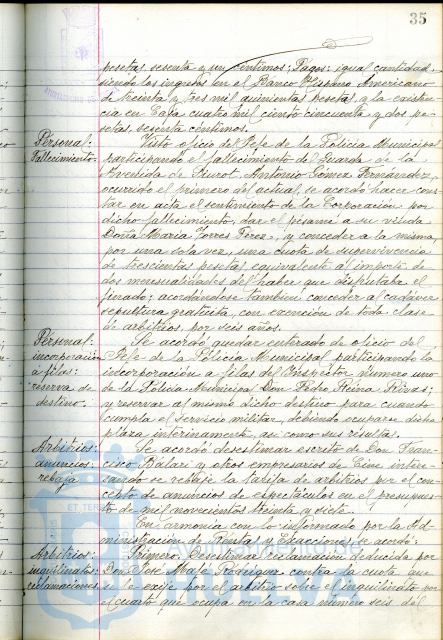 35
pesetas sesenta y un céntimos; Pagos: igual cantidad,
siendo los ingresos en el Banco Hispano Americano
de treinta y tres mil quinientas pesetas, y la existen-
cia en Caja cuatro mil ciento cincuenta y dos pe-
setas, sesenta céntimos.
Personal: Visto oficio del Jefe de la Policía Municipal
Fallecimiento. participando el fallecimiento del Guarda de la
Avenida de Siurot, Antonio Gómez Fernández,
ocurrido el primero del actual, se acordó hacer cons-
tar en acta el sentimiento de la Corporación por
dicho fallecimiento, dar el pésame a su viuda
Doña María Torres Pérez, y conceder a la misma
por una sola vez, una cuota de supervivencia
de trescientas pesetas equivalente al importe de
dos mensualidades del haber que disfrutaba el
finado; acordándose también conceder al cadáver
sepultura gratuita, con exención de toda clase
de arbitrios, por seis años.
Personal: Se acordó quedar enterado de oficio del
incorporación Jefe de la Policía Municipal participando la
a filas: incorporación a filas del Inspector número uno
reserva de de la Policía Municipal Don Pedro Reina Rivas;
destino: y reservar al mismo dicho destino para cuando
cumpla el servicio militar, debiendo ocuparse dicha
plaza interinamente, así como sus resultas.
Arbitrios: Se acordó desestimar escrito de Don Fran-
anuncios: cisco Balari y otros empresarios de Cine intere-
rebaja sando se rebaje la tarifa de arbitrios por el con-
cepto de anuncios de espectáculos en el presupues-
to de mil novecientos treinta y siete.
En armonía con lo informado por la Ad-
ministración de Rentas y Exacciones, se acordó:
Arbitrios: Primero: Desestimar reclamación deducida por
inquilinatos: Don José Malé Rodríguez contra la cuota que
reclamaciones se le exije por el arbitrio sobre el inquilinato por
el cuarto que ocupa en la casa número seis del